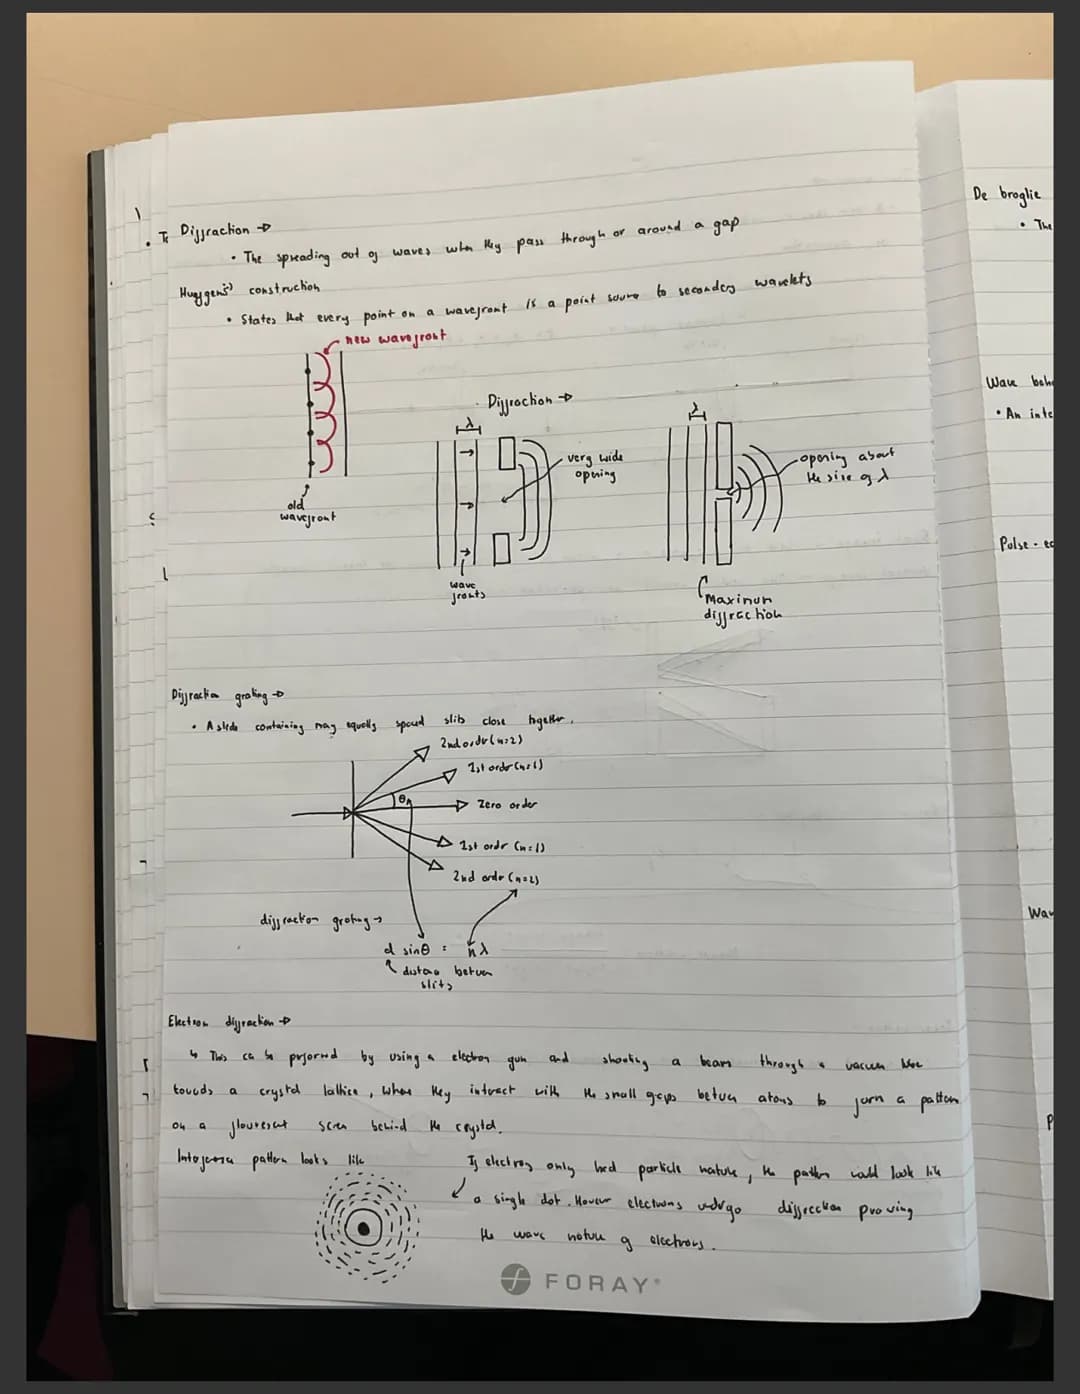 Diffraction →
• The spreading out of waves when they pass through or around a gap
Huygens' construction
• States that every point on a wavefront is a point source to secondary wavelets
new wavefront
old
wavefront
Diffraction →
λ
very wide
opening
wave
fronts
λ
opening about
the size of λ
Maximum
diffraction
Diffraction grating →
• A slide containing many equally spaced slits close together.
2nd order (n=2)
1st order (n=1)
θ
Zero order
1st order (n=1)
2nd order (n=2)
diffraction grating →
d sinθ = nλ
distance between
slits
Electron diffraction →
↳ This can be performed by using a electron gun and shooting a beam through a vacuum tube
towards a crystal lattice, where they interact with the small gaps between atoms to form a pattern
on a flourescent screen behind the crystal.
Interference pattern looks like
If electrons only had particle nature, the pattern would look like
a single dot. However electrons undergo diffraction proving
the wave nature of electrons.
FORAY
De broglie
• The
Wave beh
• An inte
Pulse - ec
Wav
P